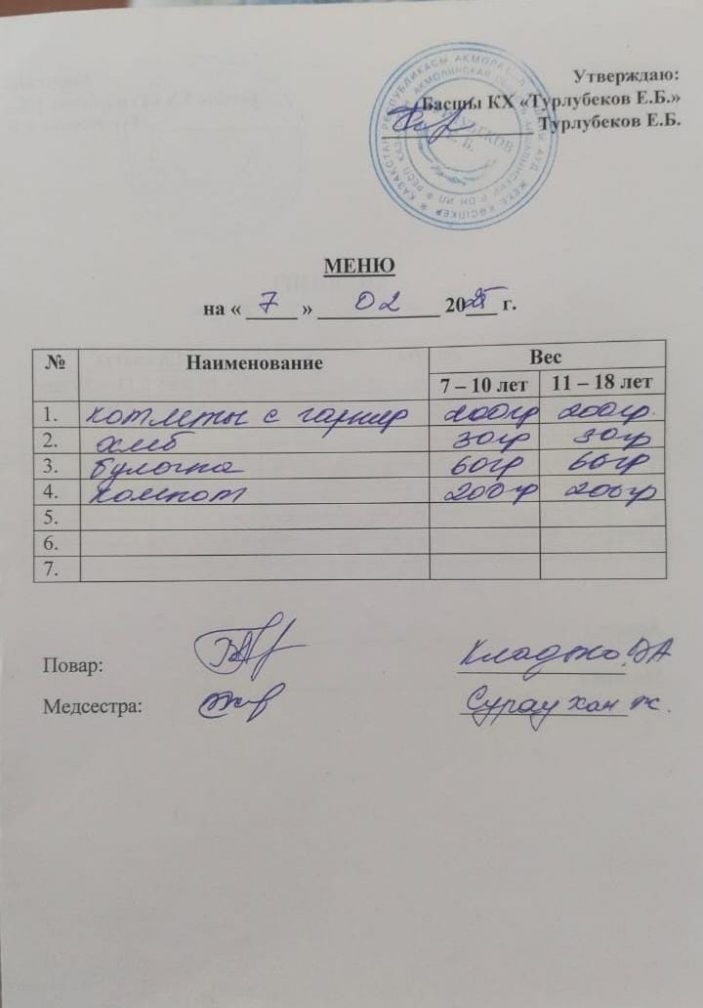 Утверждаю:
Басшы КХ «Турлубеков Е.Б.»
Турлубеков Е.Б.
МЕНЮ
на « 7 » 02 2025 г.
№ Наименование Вес
7 – 10 лет 11 – 18 лет
1. котлеты с гарнир 200гр 200гр.
2. хлеб 30гр 30гр
3. булочка 60гр 60гр
4. компот 200гр 200гр
5.
6.
7.
Повар:
Медсестра: Сурау хан ж.